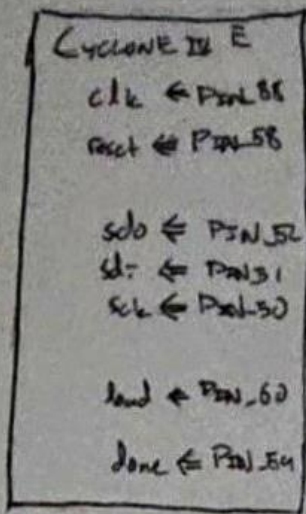 CYCLONE IV E
clk ← PIN_88
reset ⇐ PIN_58
sdo ⇐ PIN_52
sdi ⇐ PIN_51
sck ← PIN_50
load ← PIN_60
done ⇐ PIN_54